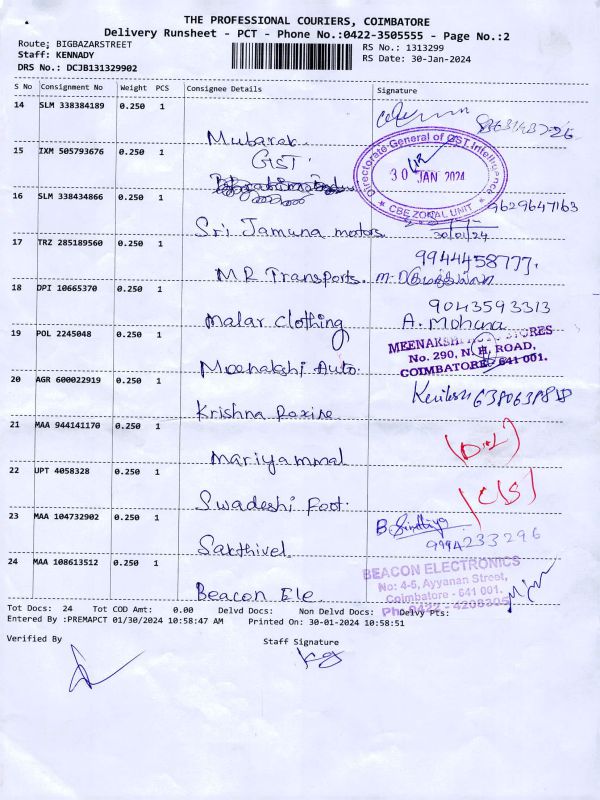 THE PROFESSIONAL COURIERS, COIMBATORE
Delivery Runsheet - PCT - Phone No.:0422-3505555 - Page No.:2
Route; BIGBAZARSTREET
Staff: KENNADY
DRS No.: DCJB131329902
RS No.: 1313299
RS Date: 30-Jan-2024
S No Consignment No Weight PCS Consignee Details Signature
14 SLM 338384189 0.250 1
Mubarak
15 IXM 505793676 0.250 1
GST
Directorate General of GST Intelligence
30 JAN 2024
* CBE ZONAL UNIT *
16 SLM 338434866 0.250 1
9629647163
Sri Jamuna motors
30/01/24
17 TRZ 285189560 0.250 1
9944458777.
M.R Transports.
18 DPI 10665370 0.250 1
9043593313
Malar Clothing A. Mohana
19 POL 2245048 0.250 1
MEENAKSHI STORES
No. 290, N.H. ROAD,
COIMBATORE - 641 001.
Meenakshi Auto
20 AGR 600022919 0.250 1
Krishna Roxine
21 MAA 944141170 0.250 1
Mariyammal
22 UPT 4058328 0.250 1
(C/S)
Swadeshi Foot
23 MAA 104732902 0.250 1
9994233296
Sakthivel
24 MAA 108613512 0.250 1
BEACON ELECTRONICS
No: 4-5, Ayyanan Street,
Coimbatore - 641 001.
Ph: 0422 - 4208305
Beacon Ele
Tot Docs: 24 Tot COD Amt: 0.00 Delvd Docs: Non Delvd Docs: Delvy Pts:
Entered By :PREMAPCT 01/30/2024 10:58:47 AM Printed On: 30-01-2024 10:58:51
Verified By Staff Signature